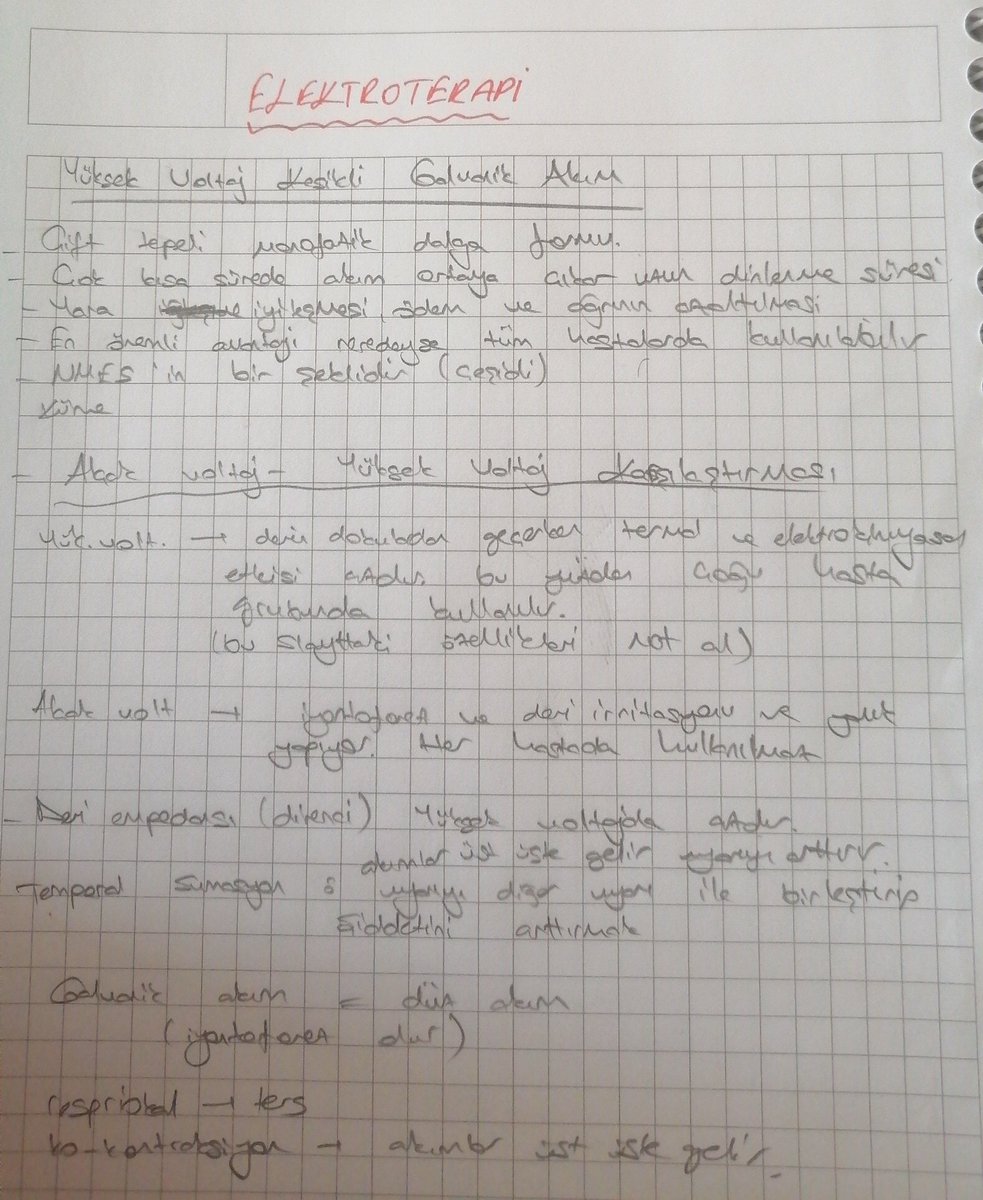 ELEKTROTERAPİ
Yüksek Voltaj Kesikli Galvanik Akım
- Çift tepeli monofazik dalga formu.
- Çok kısa sürede akım ortaya çıkar uzun dinlenme süresi
- Yara iyileşmesi, ödem ve ağrının azaltılması
- En önemli avantajı neredeyse tüm hastalarda kullanılabilir
- NMES'in bir şeklidir (çeşidi)
- Alçak voltaj - Yüksek Voltaj Karşılaştırması
Yük. volt. → deri dokudan geçerken termal ve elektrokimyasal
etkisi azdır. bu yüzden çoğu hasta
grubunda kullanılır.
(bu slayttaki özellikleri not al)
Alçak volt → iyontoforez ve deri irritasyonu ve yanık
yapıyor. Her hastada kullanılmaz
- Deri empedansı (direnci) Yüksek voltajda azdır.
akımlar üst üste gelir uyarıyı arttırır.
Temporal sumasyon : uyarıyı diğer uyarı ile birleştirip
şiddetini arttırmak
Galvanik akım = düz akım
(iyontoforez dur)
respribkal → ters
ko-kontraksiyon → akımlar üst üste gelir.